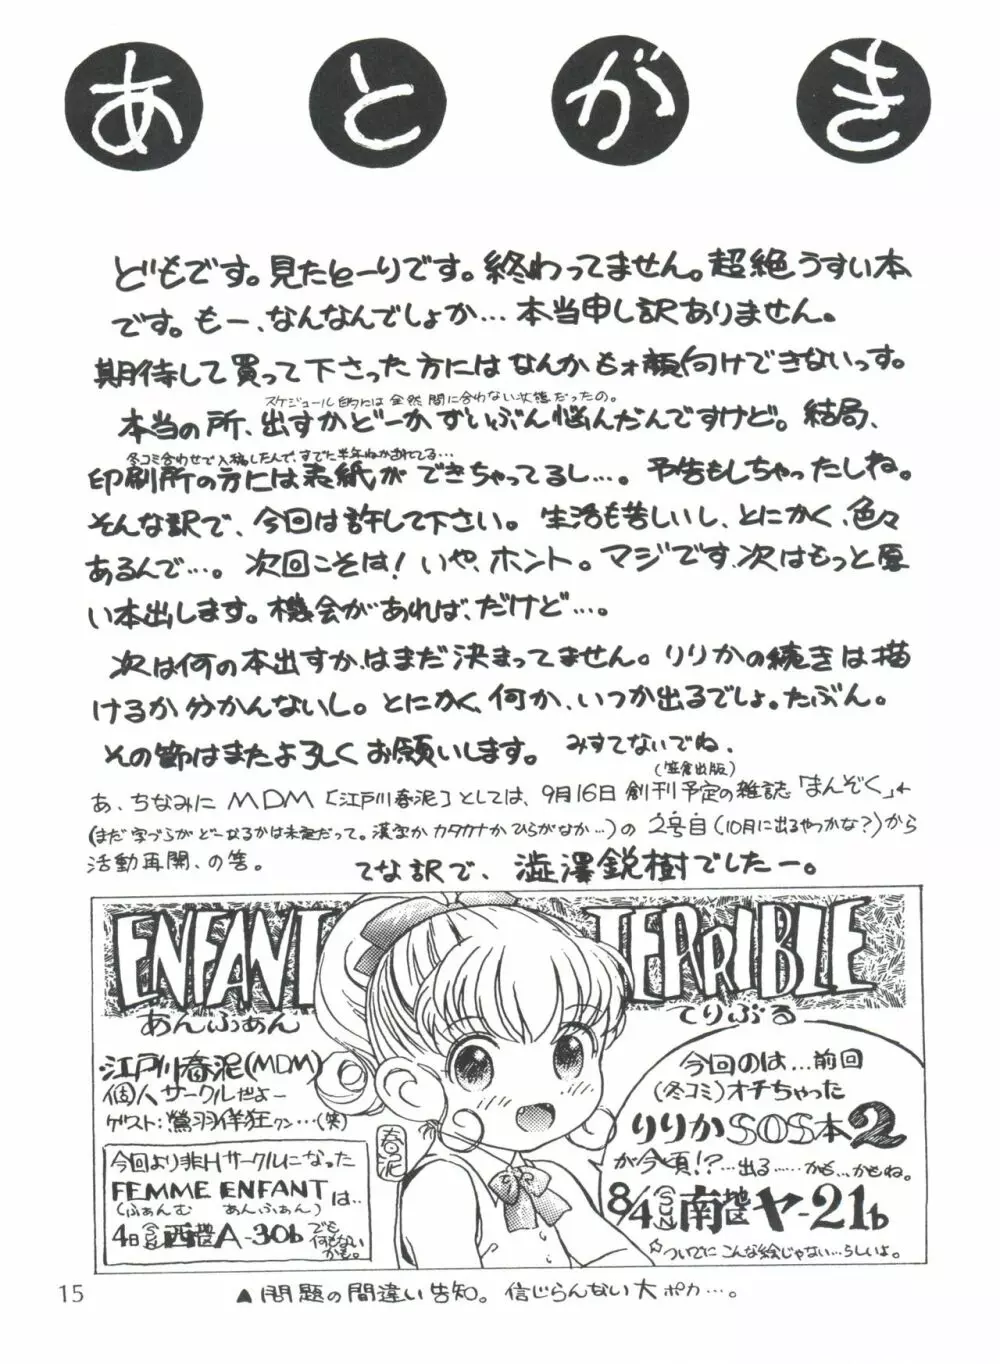 あとがき
どもです。見たとーりです。終わってません。超絶うすい本
です。もー、なんなんでしょか…本当申し訳ありません。
期待して買って下さった方にはなんかもォ顔向けできないっす。
スケジュール的には全然間に合わない状態だったの。
本当の所、出すかどーかずいぶん悩んだんですけど。結局、
冬コミ合わせで入稿したんで、すでに半年ねかされてる…
印刷所の方には表紙ができちゃってるし…。予告もしちゃったしね。
そんな訳で、今回は許して下さい。生活も苦しいし、とにかく、色々
あるんで…。次回こそは!いや、ホント。マジです、次はもっと厚
い本出します。機会があれば、だけど…。
次は何の本出すか、はまだ決まってません。りりかの続きは描
けるか分かんないし。とにかく、何か、いつか出るでしょ。たぶん。
その節はまたよろしくお願いします。みすてないでね、
(笠倉出版)
あ、ちなみにMDM[江戸川春泥]としては、9月16日創刊予定の雑誌「まんぞく」←
(まだ字づらがどーなるかは未定だって。漢字かカタカナかひらがなか…)の2号目(10月に出るやつかな?)から
活動再開、の筈。
てな訳で、澁澤鋭樹でしたー。
ENFANT TERRIBLE
あんふぁん てりぶる
江戸川春泥(MDM)
個人サークルだよー
ゲスト:鶯羽佯狂クン…(笑)
春泥
今回より非Hサークルになった
FEMME ENFANTは..
(ふぁんむ あんふぁん)
4日(SUN)西地区A-30b でも何もないかも。
今回のは…前回
(冬コミ)オチちゃった
りりかSOS本2
が今頃!?…出る……かも…かもね。
8/4(SUN)南地区ヤ-21b
ついでにこんな絵じゃない…らしいよ。
▲問題の間違い告知。信じらんない大ポカ…。
15